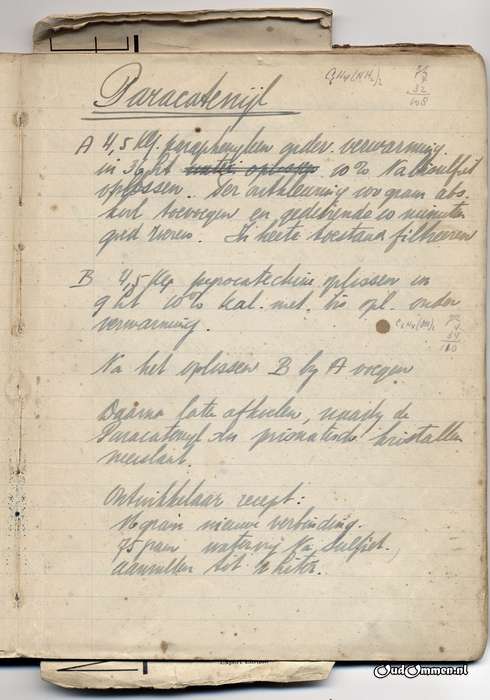 Paracatenijl
C6H4(NH2)2
72
4
32
108
A 4,5 Klg. paraphenyleen onder verwarming
in 36 ltr 10% Na bisulfiet
oplossen. Ter ontkleuring 100 gram abs.
kool toevoegen en gedurende 20 minuten
goed roeren. In heete toestand filtreeren
B 4,5 Klg pyrocatechine oplossen in
9 ltr 10% kal. met. bis opl. onder
verwarming.
C6H4(OH)2
72
4
34
110
Na het oplossen B bij A voegen
Daarna laten afkoelen, waarbij de
Paracatenijl in prismatische kristallen
neerslaat.
Ontwikkelaar recept:
16 gram nieuwe verbinding.
75 gram watervrij Na Sulfiet,
aanvullen tot liter.
OudOmmen.nl